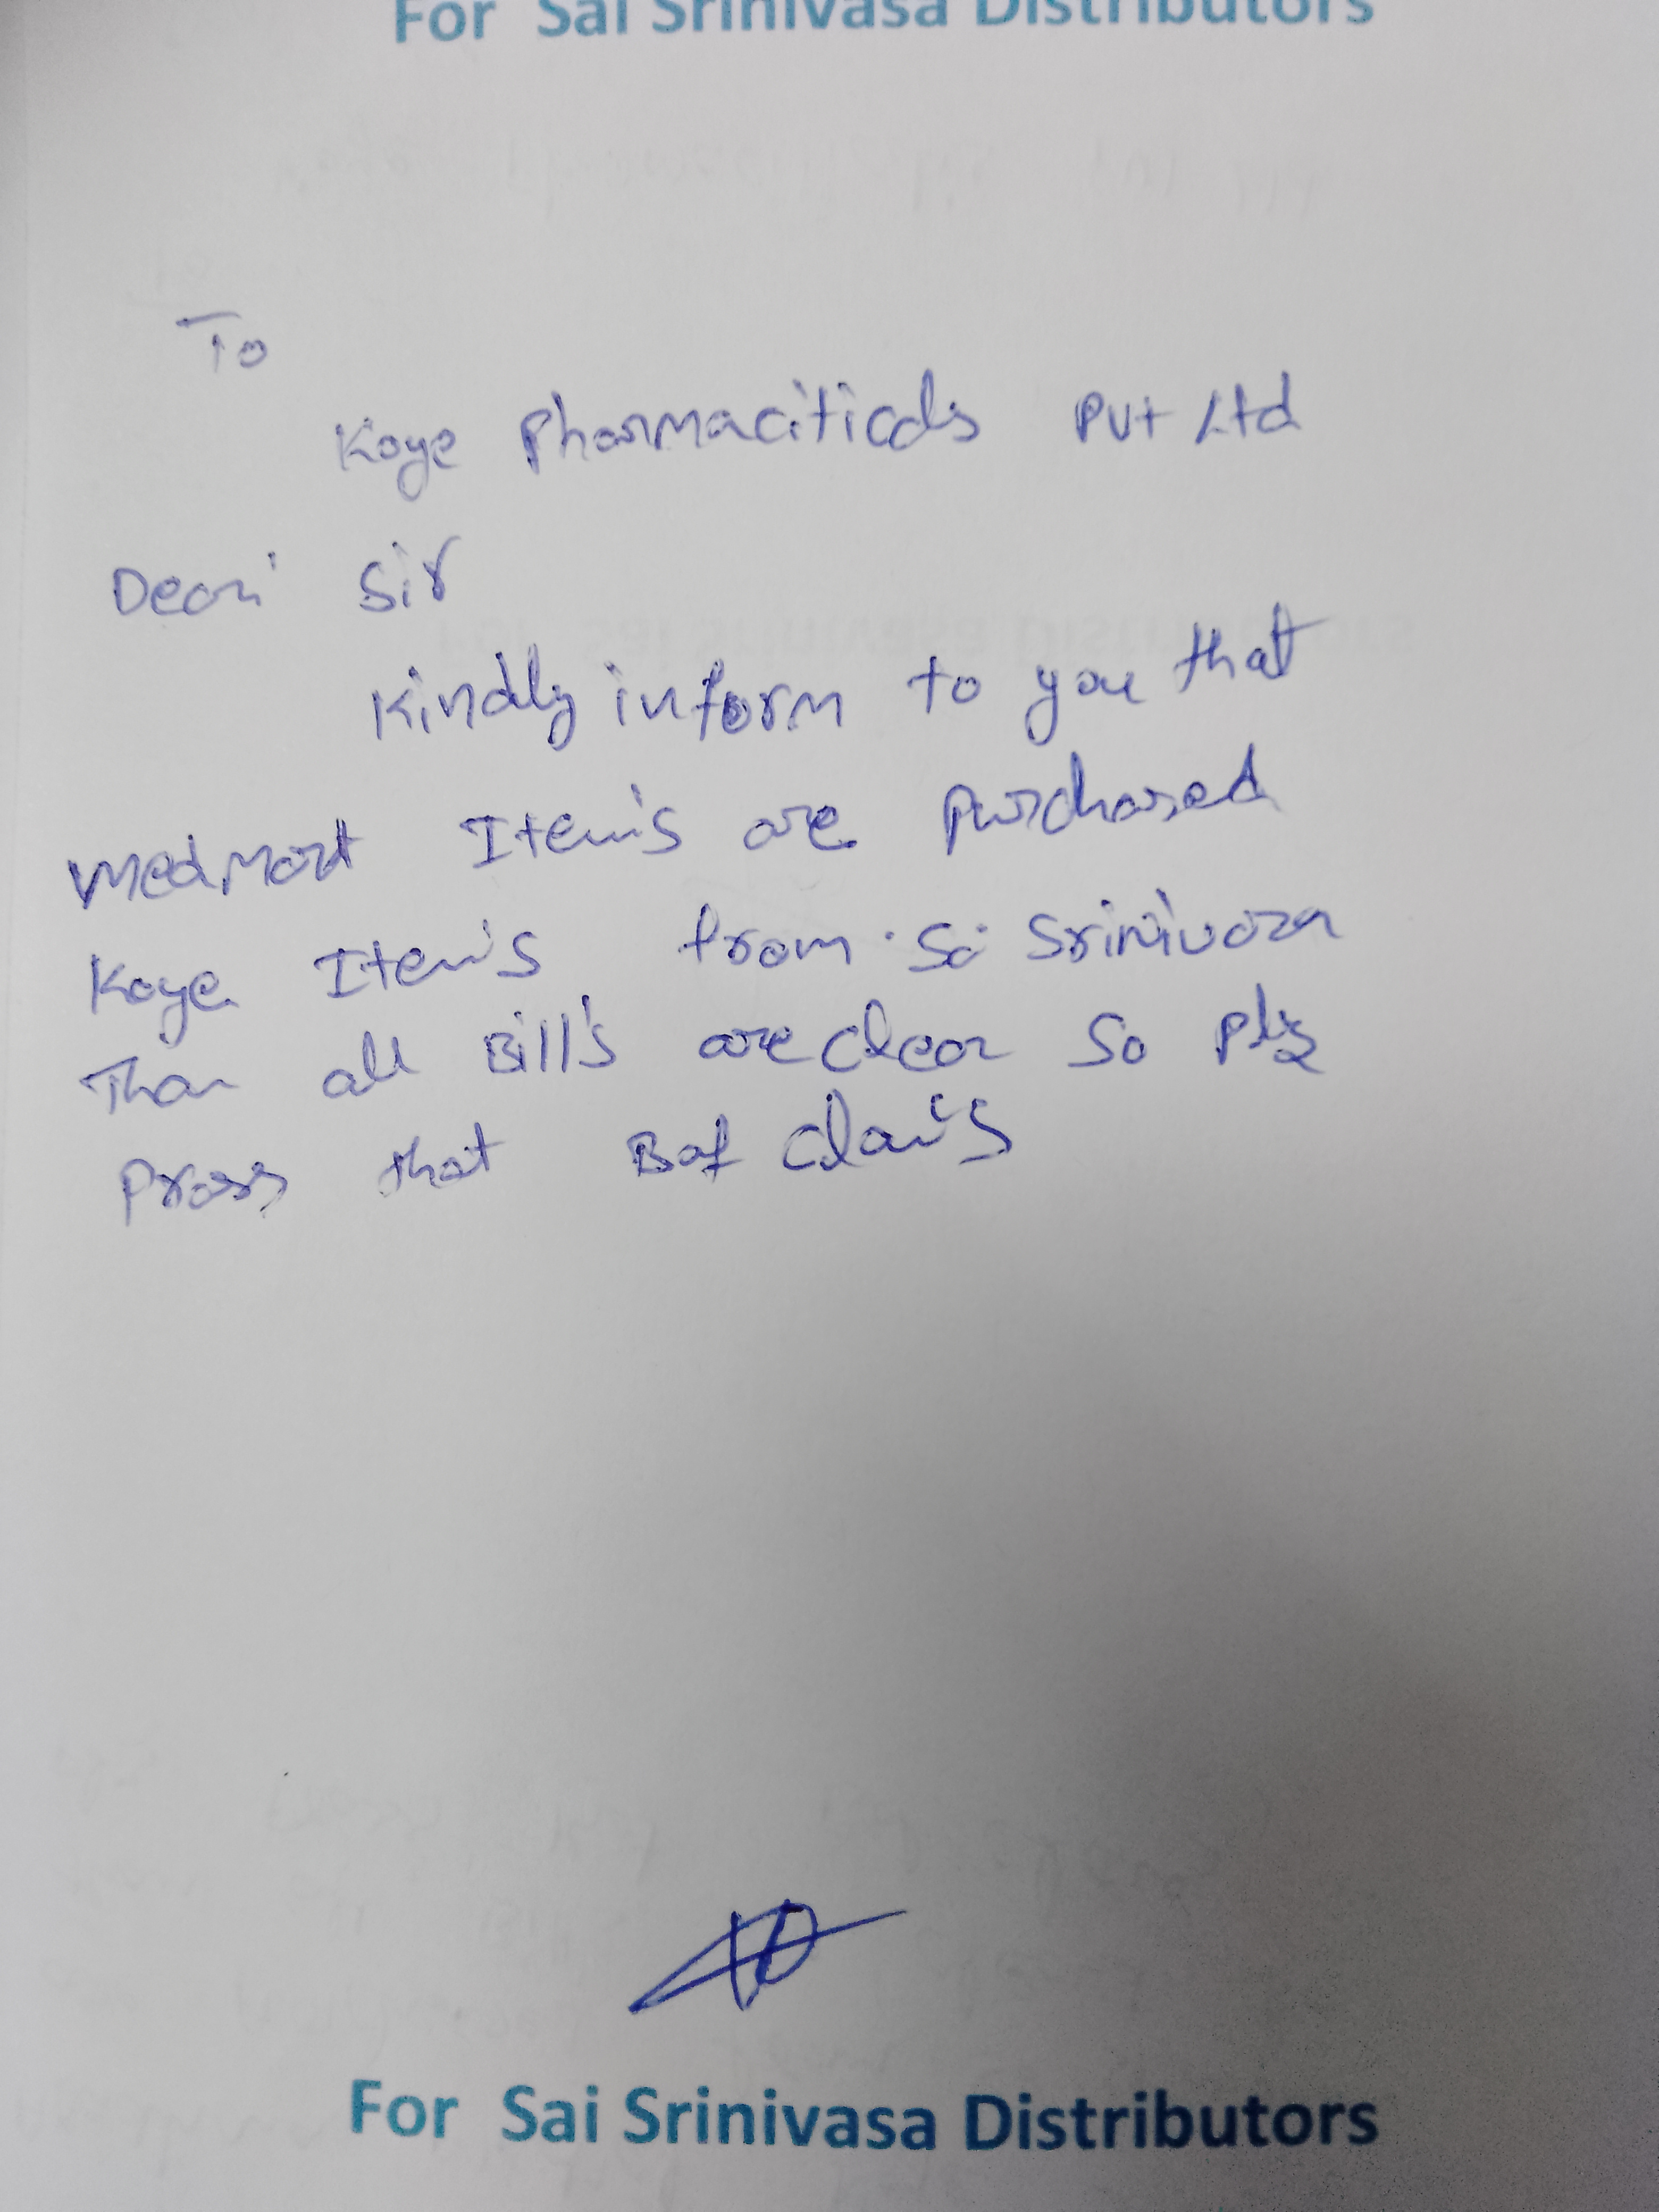 For Sai Srinivasa Distributors
To
Koye Pharmaciticals Pvt Ltd
Dear Sir
Kindly inform to you that
Medmart Item's are Purchased
Koye Item's from Sai Srinivasa
Than all Bill's are clear So Plz
Prass that
For Sai Srinivasa Distributors